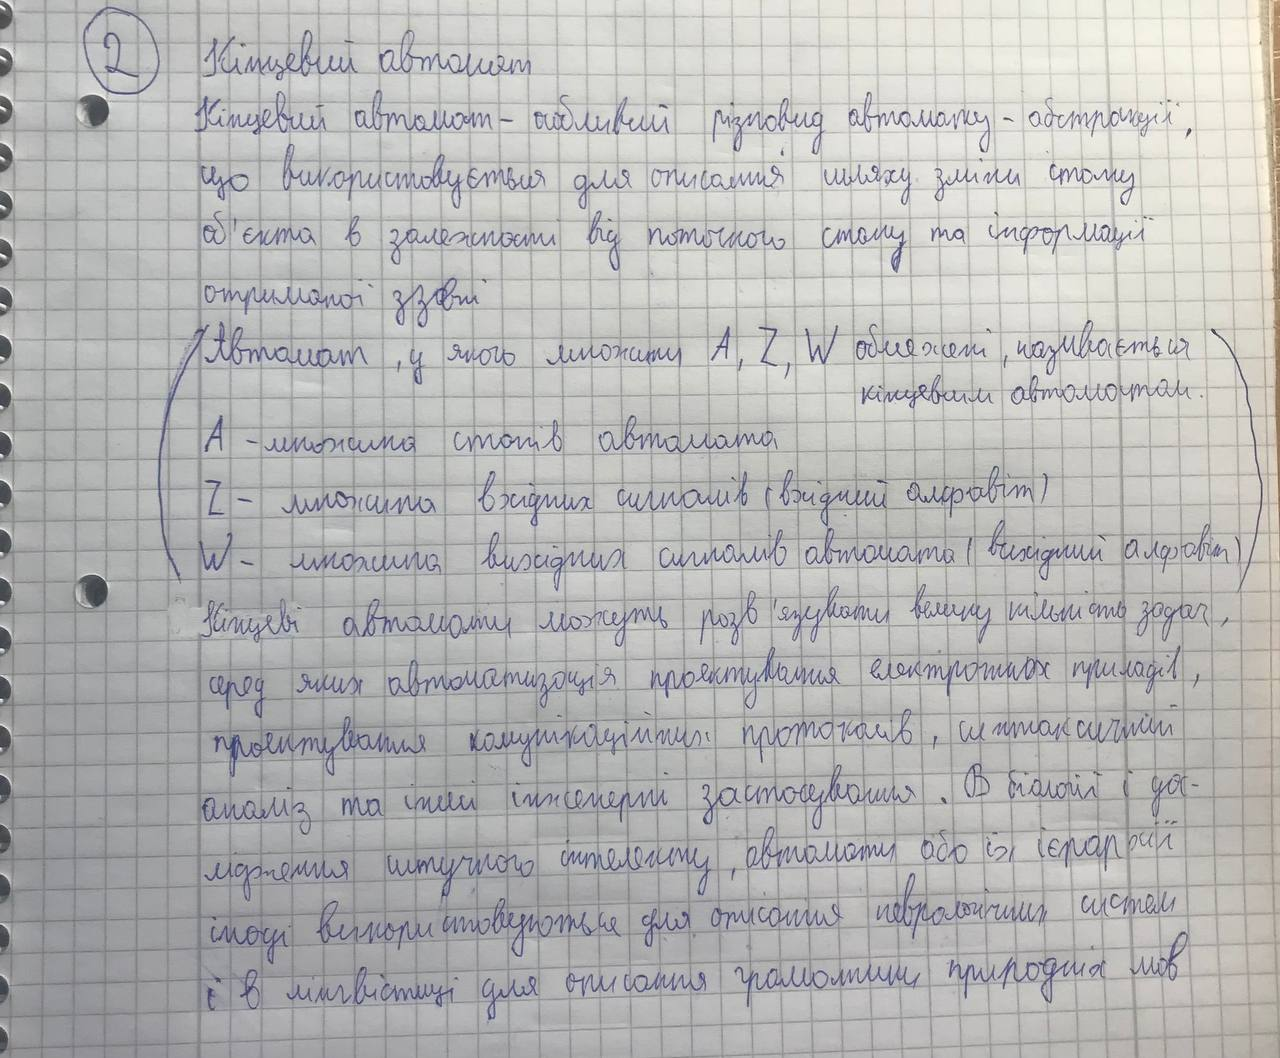 2 Кінцевий автомат
Кінцевий автомат - особливий різновид автомату - абстракції,
що використовується для описання шляху зміни стану
об'єкта в залежності від поточного стану та інформації
отриманої ззовні
Автомат, у якого множини A, Z, W обмежені, називається
кінцевим автоматом.
A - множина станів автомата
Z - множина вхідних сигналів (вхідний алфавіт)
W - множина вихідних сигналів автомата (вихідний алфавіт)
Кінцеві автомати можуть розв'язувати велику кількість задач,
серед яких автоматизація проектування електронних приладів,
проектування комунікаційних протоколів, синтаксичний
аналіз та інші інженерні застосування. В біології і дос-
лідження штучного інтелекту, автомати або їх ієрархії
іноді використовуються для описання неврологічних систем
і в лінгвістиці для описання граматики природніх мов